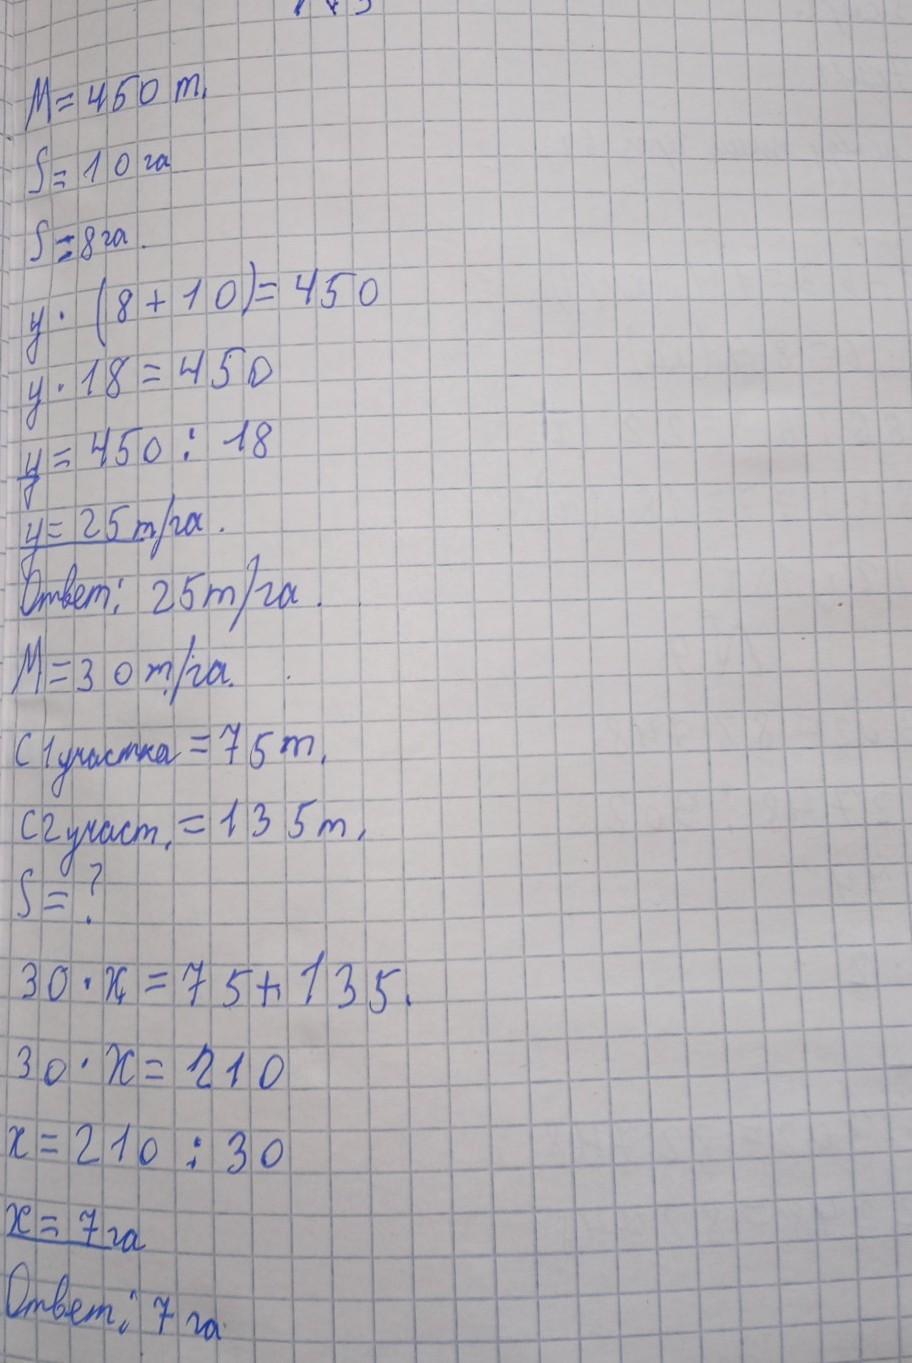 М = 450 т.
S = 10 га
S = 8 га.
у · (8 + 10) = 450
у · 18 = 450
у = 450 : 18
у = 25 т/га.
Ответ: 25 т/га.
М = 30 т/га.
С 1 участка = 75 т.
С 2 участ. = 135 т.
S = ?
30 · х = 75 + 135.
30 · х = 210
х = 210 : 30
х = 7 га
Ответ: 7 га